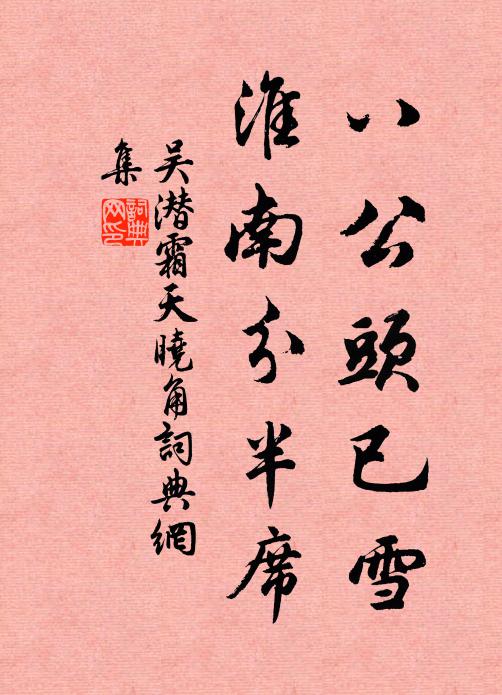 八公頭已雪
淮南分半席
吴潜霜天曉角詞典網
集
詞典
网印